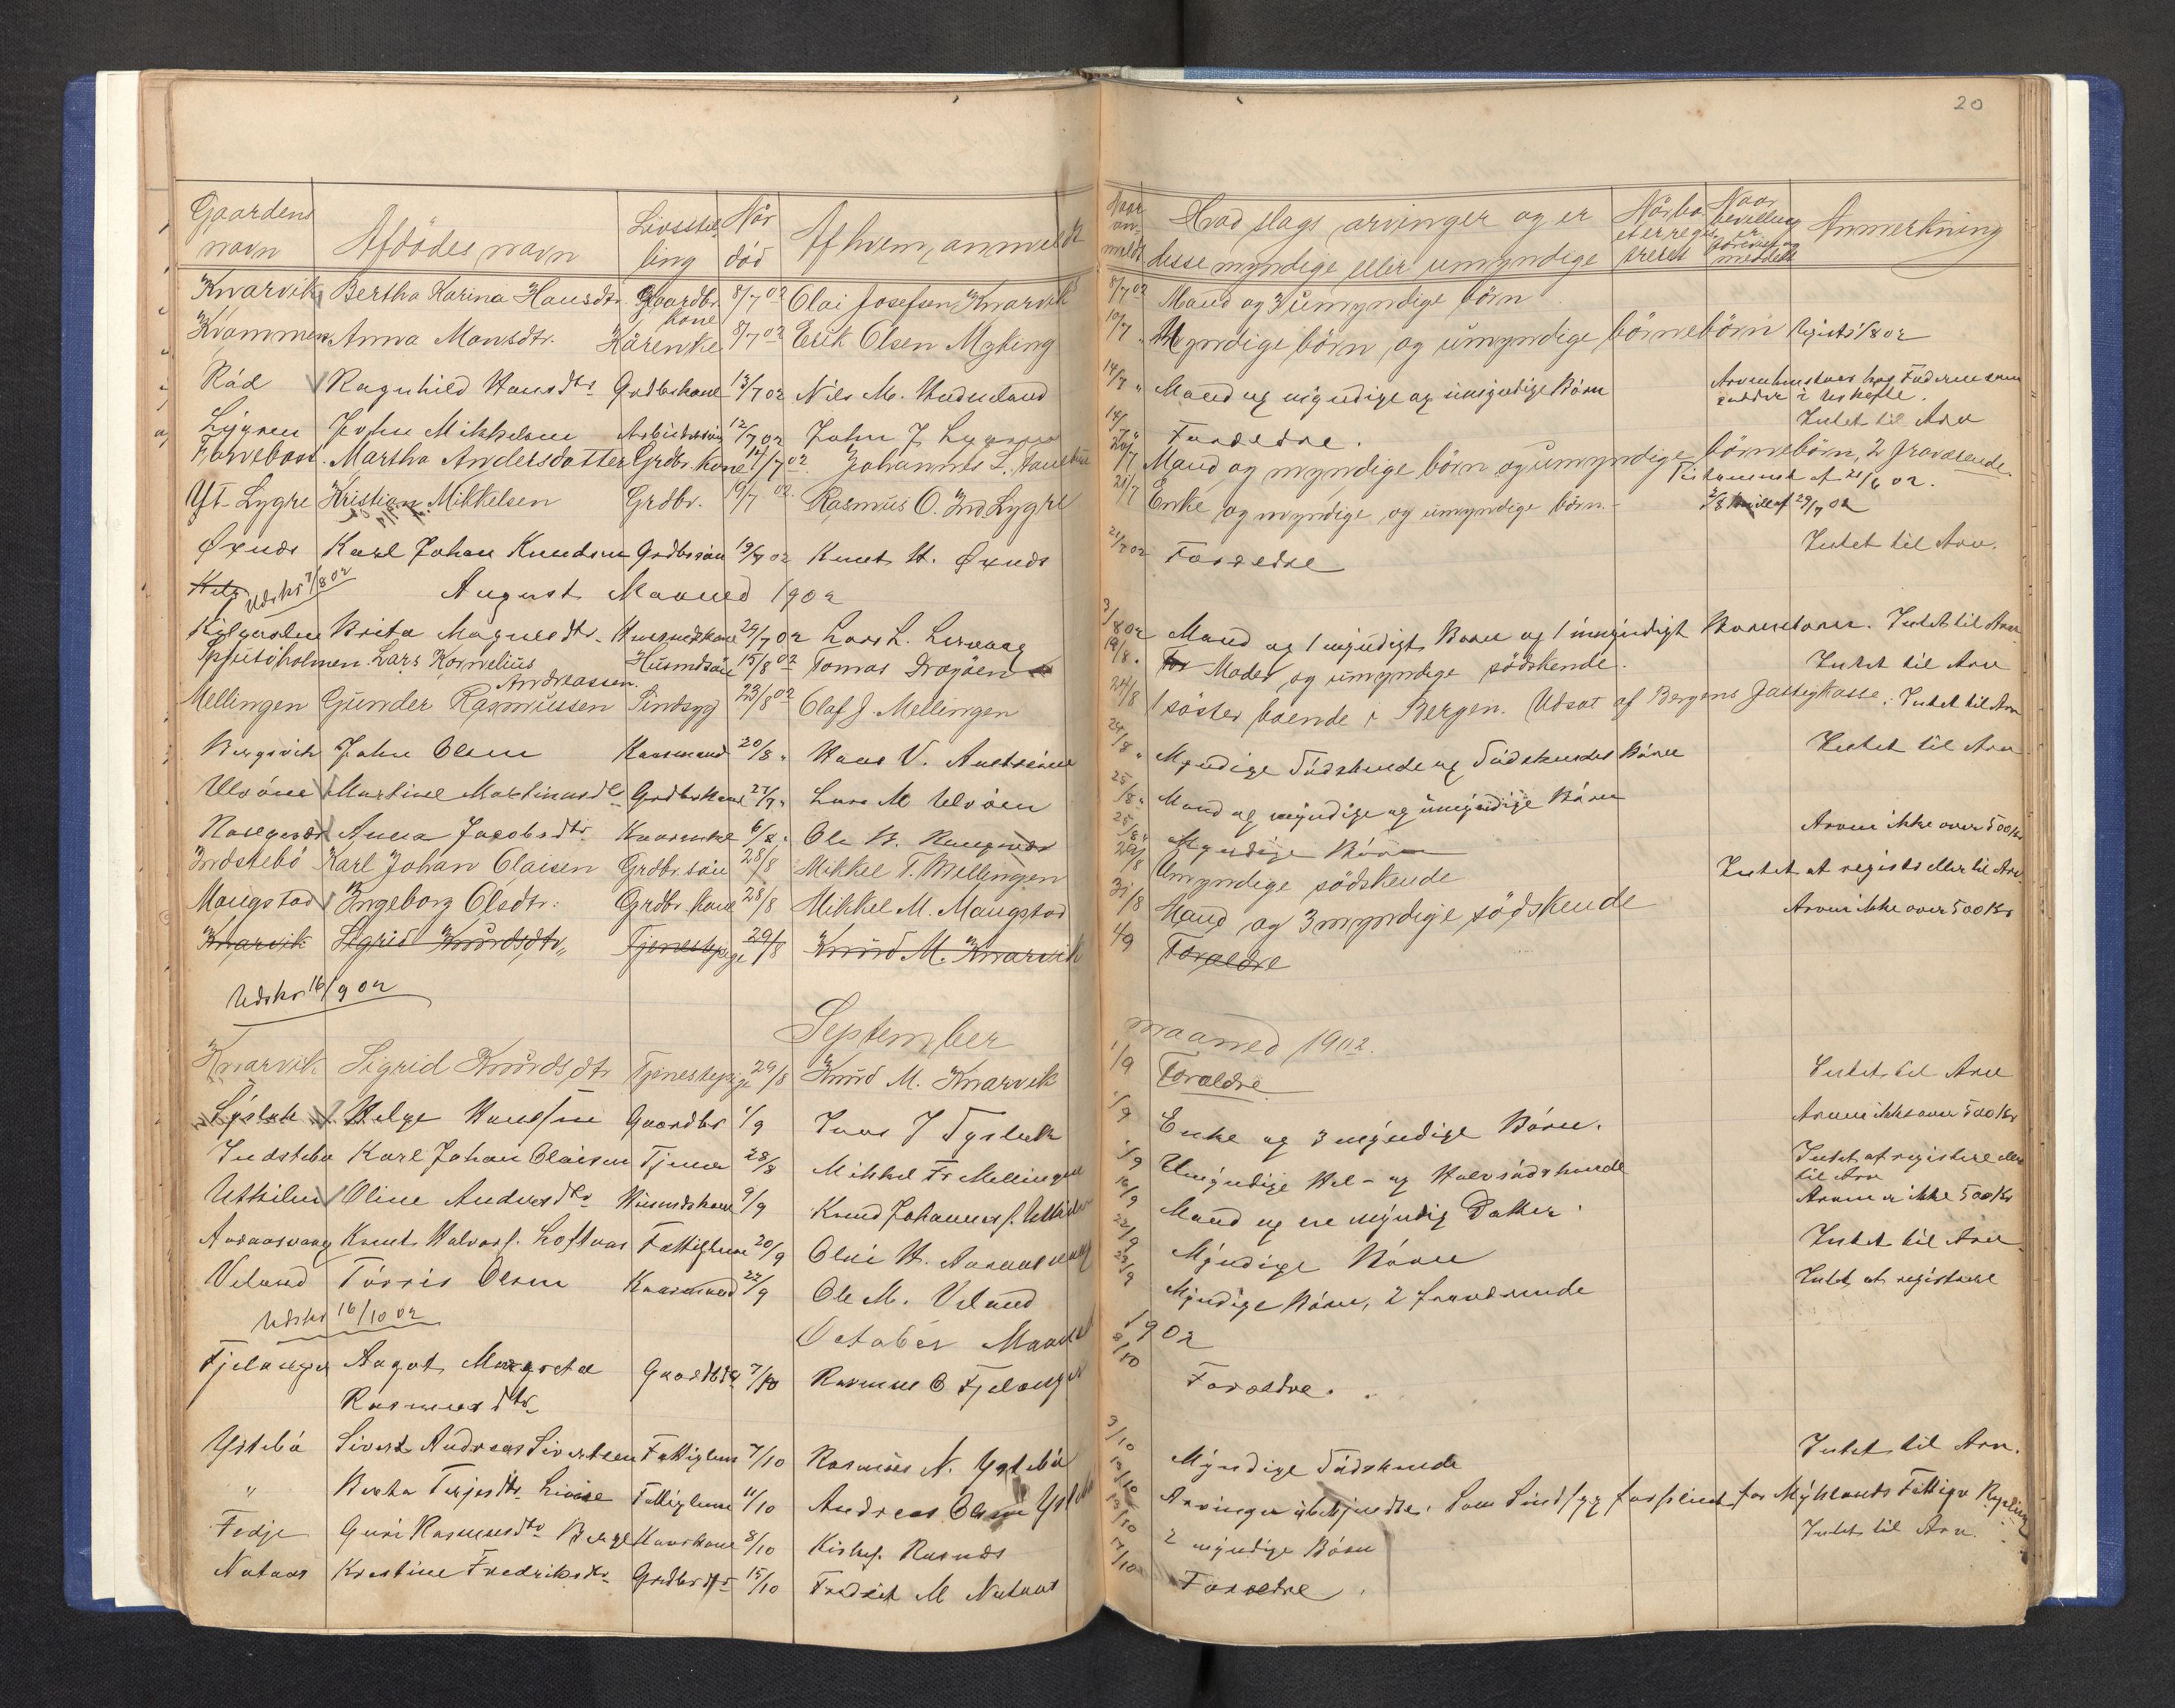 20
Gaardens navn | Afdödes navn | Livsstilling | Når död | Af hvem anmeldt | Naar anmeldt | Hvad slags arvinger og er disse myndige eller umyndige | Når bo et er regi streret | Naar bevilling er meddelt | Anmerkning
Knarvik | Bertha Karina Hansdtr. | Gaardbr. kone | 8/7 02 | Olai Josefsen Knarvik | 8/7 02 | Mand og 3 umyndige börn
Kvammen | Anna Monsdtr. | Kårenke | 8/7 02 | Erik Olsen Myking | 10/7 | Myndige börn og umyndige börnebörn | 1/8 02
Råd | Ragnhild Hansdtr | Grdbrkone | 13/7 02 | Nils M. | 14/7 " | Mand og myndige og umyndige Börn | hos Faderen som i Uskifte.
Lygren | John Mikkelsen | 12/7 02 | John J. Lygren | 14/7 " | Forældre. | Intet til Arv
Martha Andersdatter | Grdbr. Kone | 17/7 02 | Johannes L. | 20/7 | Mand og myndige börn og umyndige börnebörn, 2 fraværende. Testament af 21/6 02.
Yt. Lygre | Kristian Mikkelsen | Grdbr. | 19/7 02. | Rasmus O. Ind Lygre | 21/7 | Enke og myndige og umyndige börn.
Øxnes | Karl Johan Knudsen | Grdbrsön | 19/7 02 | Knut H. Øxnes | 21/7 02 | Forældre | Intet til Arv.
Udskr 7/8 02
August Maaned 1902
Brita Magnesdtr. | Husmdskone | 29/7 02 | Lars L. Lervaag | 3/8 02 | Mand og 1 myndigt Barn og 1 umyndigt Barnebarn. | Intet til Arv
Spjutöholmen | Lars Kornelius Andreassen | Husmdsön | 15/8 02 | Tomas Dragöen | 19/8 " | Moder og umyndige södskende. | Intet til Arv
Mellingen | Gunder Rasmussen | Sindsyg | 23/8 02 | Olaf J Mellingen | 24/8 | 1 söster boende i Bergen. Udsat af Bergens Fattigkasse. | Intet til Arv
Bergsvik | John Olsen | Kaarmand | 20/8 " | Hans V. | 24/8 " | Myndige Södskende og Södskendes Börn | Intet til Arv
Ulvöen | Martine Martinusdtr | Grdbrkone | 27/7 " | Lars M Ulvöen | 25/8 " | Mand og myndige og umyndige Börn
Anna Jacobsdtr | Kaarenke | 6/8 " | Ole B. | 25/8 " | Myndige Börn | Arven ikke over 500 Kr
Indstebö | Karl Johan Olaisen | Grdbr. sön | 28/8 | Mikkel T. Mellingen | 29/8 | Umyndige södskende | Intet at registr eller til Arv.
Mangstad | Ingeborg Olsdtr. | Grdbr. kone | 28/8 | Mikkel M. Mangstad | 31/8 | Mand og 3 myndige södskende | Arven ikke over 500 Kr
Knarvik | Sigrid Knudsdtr | Tjenestepige | 29/8 | Knud M. Knarvik | 4/9 | Forældre
Udskr 16/9 02
September maaned 1902.
Knarvik | Sigrid Knudsdtr | Tjenestepige | 29/8 | Knud M. Knarvik | 1/9 | Forældre | Intet til Arv
Helge Hansen | Gaardbr | 1/9 | Enke og 3 myndige Börn. | Arven ikke over 500 Kr
Indstebö | Karl Johan Olaisen | Tjener | 28/8 | Mikkel Fr Mellingen | 1/9 | Umyndige Hel- og Halvsödskende | Intet at registrere eller til Arv
Utkilen | Oline Andersdtr | Husmdskone | 9/9 | Knud Johanness. Utkilen | 16/9 | Mand og en myndig Datter. | Arven er ikke 500 Kr
Knut Halvors. Loftaas | Fattiglem | 20/9 | Olai H. | 22/9 | Myndige Börn | Intet til Arv
Veland | Törris Olsen | Kaarmand | 22/9 | Ole M. Veland | 23/9 | Myndige Börn, 2 fraværende | Intet at registrere
Udskr 16/10 02
October Maaned 1902
Fjelanger | Aagot Margreta Rasmusdtr | 7/10 | Rasmus O Fjelanger | 8/10 | Forældre.
Ystebö | Sivert Andreas Sivertsen | Fattiglem | 7/10 | Rasmus N. Ystebö | 9/10 | Myndige Södskende | Intet til Arv.
" | Bertha Terjesdtr | Fattiglem | 11/10 | Andreas Olsen Ystebö | 13/10 | Arvinger ubekjendte. Som Sindssyg forpleiet for
Fedje | Guri Rasmusdtr Berge | Kaarkone | 8/10 | 13/10 | 2 myndige Börn | Intet til Arv.
Nataas | Kristine Fredriksdtr | Grdbrdtr | 15/10 | Fredrik M Nataas | 17/10 | Forældre